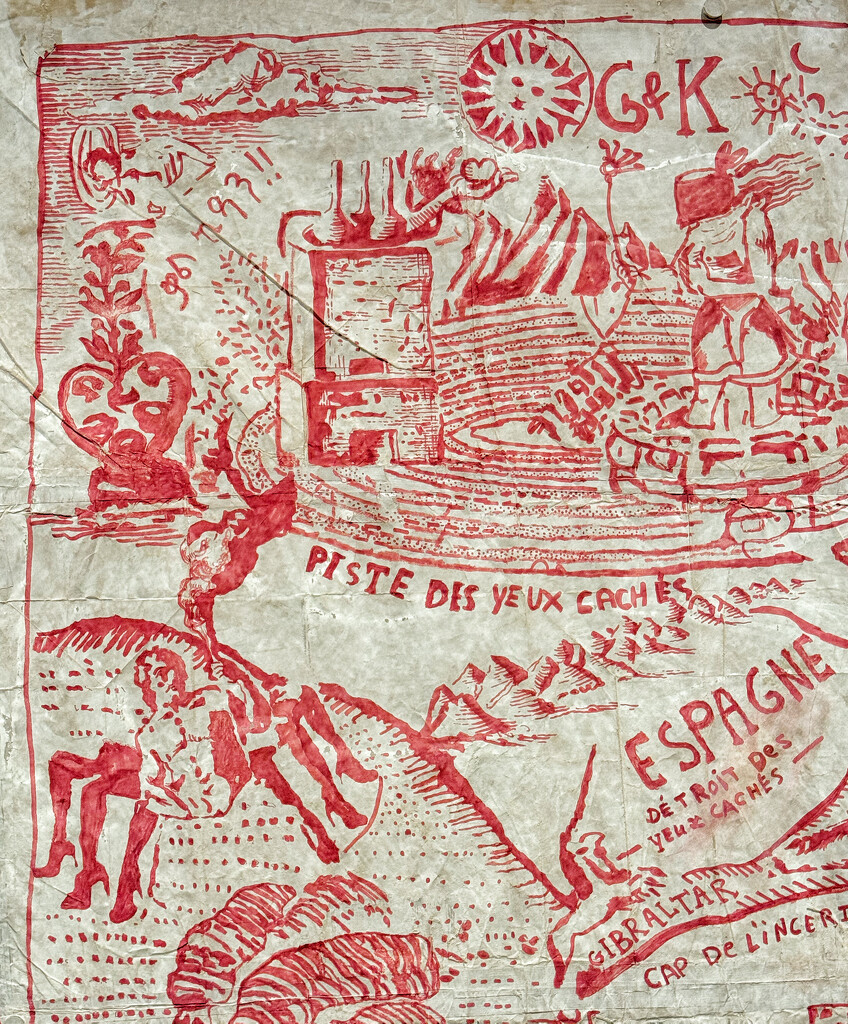 G & K
PISTE DES YEUX CACHÉS
ESPAGNE
DÉTROIT DES
YEUX CACHÉS
GIBRALTAR
CAP DE L'INCERT